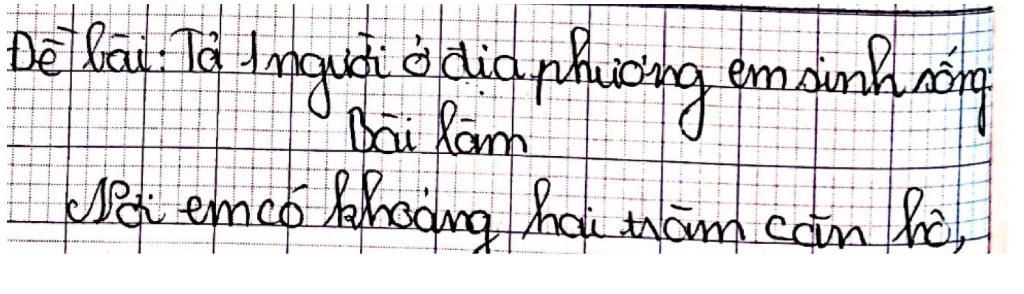 Đề bài: Tả 1 người ở địa phương em sinh sống.
Bài làm
Nơi em có khoảng hai trăm căn hộ,